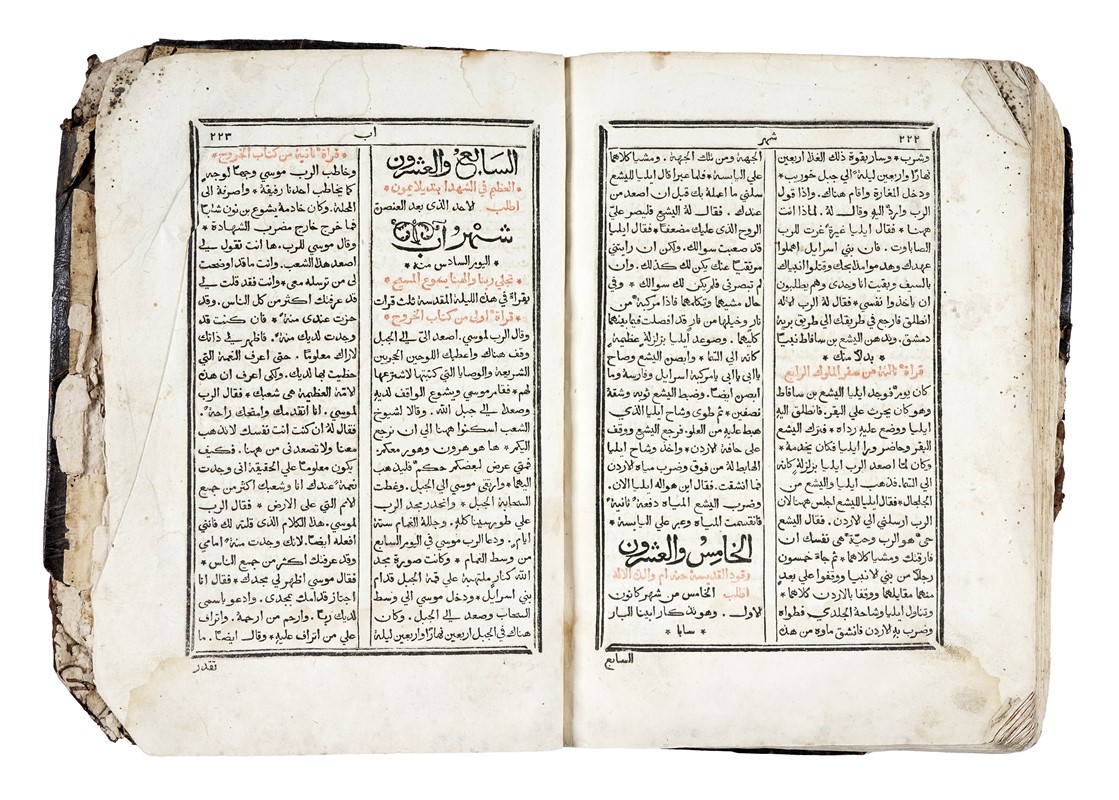 ٢٢٢
شهر
وشرب * وسار بقوة ذلك الغذا اربعين
نهارًا واربعين ليلة * الي جبل خوريب *
ودخل للمغارة واقام هناك. واذا قول
الرب واردٌ اليهِ وقال لهُ. لماذا انت
ههنا * فقال ايليا غيرةً غرت للرب
الصاباوت. فان بني اسرايل اهملوا
عهدك وهدموا مذابحك وقتلوا انبياك
بالسيف وبقيت انا وحدي وهم يطلبون
ان ياخذوا نفسي * فقال لهُ الرب لالهُ
انطلق فارجع في طريقك الي طريق برية
دمشق. وتدهن اليشع بن سافاط نبيًا
* بدلاً منك *
قراةٌ ثالثة من سفر الملوك الرابع
كان يومٌ فوجد ايليا اليشع بن سافاط
وهو كان يحرث علي البقر. فانطلق اليهِ
ايليا ووضع عليهِ رداه * فترك اليشع
البقر وحاضر ورا ايليا فكان يخدمهُ *
وكان لما اصعد الرب ايليا بزلزلةٍ كانهُ
الي السما. فذهب ايليا واليشع من
الجلجال * فقال ايليا لليشع اجلس ههنا لان
الرب ارسلني الي لاردن. فقال اليشع
حيٌّ هو الرب وحيّةٌ هي نفسك ان
فارقتك ومشيا كلاهما * ثم جاءَ خمسون
رجلاً من بني لانبيا ووقفوا علي بعدٍ
منهما مقابلهما ووقفا بالاردن كلاهما *
وتناول ايليا وشاحهُ الجلدي. فطواه
وضرب بهِ لاردن فانشق ماوه من هذه
الجهة ومن تلك الجهة. ومشيا كلاهما
علي اليابسة * فلما عبرا قال ايليا لليشع
سلني ما اعملهُ بك قبل ان اصعد من
عندك. فقال لهُ اليشع فليصر عليَّ
الروح الذي عليك مضعفًا * فقال ايليا
قد صعبت سوالك. ولكن ان رايتني
مرتقيًا عنك يكن لك كذلك. وان
لم تبصرني فلم يكن لك سوالك * وفي
حال مشيهما وتكلمهما فاذا مركبةٌ من
نار وخيلها من نارٍ قد افصلت فيما بينهما
كليهما. وصوعد ايليا بزلزلةٍ عظيمة
كانهُ الي السما * وابصر اليشع وصاح
يا ابي يا ابي يا مركبة اسرايل وفارسهُ وما
ابصره ايضًا. وضبط اليشع ثوبهُ وشقهُ
نصفين * ثم طوي وشاح ايليا الذي
هبط عليهِ من العلو. فرجع اليشع ووقف
علي حافة لاردن * واخذ وشاح ايليا
الهابط لهُ من فوق وضرب مياه لاردن
فما انشقت. فقال اين هو اله ايليا الان.
وضرب اليشع المياه دفعةً ثانيةً *
فانقسمت المياه وعبر علي اليابسة *
الخامس والعشرون
رقود القديسة حنه ام والدة الاله
اطلب الخامس من شهر كانون
لاول. وهو تذكار ابينا البار
* سابا *
السابع
اب
٢٢٣
السابع والعشرون
* العظيم في الشهدا بنديلايمون *
اطلب لاحد الذي بعد العنصرة
شهر آب
* اليوم السادس منهُ *
* تجلي ربنا والهنا يسوع المسيح *
يقراءُ في هذه الليلة المقدسة ثلث قرات
* قراةٌ اولي من كتاب الخروج *
وقال الرب لموسي. اصعد الىَّ الي الجبل
وقف هناك واعطيك اللوحين الحجريين
الشريعة والوصايا التي كتبتها لاشترعها
لهم * فقام موسي ويشوع الواقف لديهِ
وصعدا الي جبل الله. وقالا لشيوخ
الشعب اسكنوا ههنا الي ان نرجع
اليكم * ها هو هرون وهور معكم.
فمتي عرض لبعضكم حكمٌ فليذهب
اليهما * وارتقي موسي الي الجبل. وغطت
السحابة الجبل * وانحدر مجد الرب
علي طور سينا كلهِ. وجللهُ الغمام ستة
ايام. ودعا الرب موسي في اليوم السابع
من وسط الغمام * وكانت صورة مجد
الله كنارٍ ملتهبة علي قمة الجبل قدام
بني اسرايل * ودخل موسي الي وسط
السحاب وصعد الي الجبل. وكان
هناك في الجبل اربعين نهارًا واربعين ليلة
* قراةٌ ثانية من كتاب الخروج *
وخاطب الرب موسي وجهًا لوجه
كما يخاطب احدنا رفيقهُ * واصرفهُ الي
المحلة. وكان خادمهُ يشوع بن نون شابًا
فما خرج خارج مضرب الشهادة *
وقال موسي للرب. ها انت تقول لي
اصعد هذا الشعب. وانت ما قد اوضحت
لي من ترسلهُ معي * وانت فقد قلت لي
قد عرفتك اكثر من كل الناس. وقد
حزت عندي منةً * فان كنت قد
وجدت لديك منةً. فاظهر لي ذاتك
لاراك معلومًا. حتي اعرف النعمة التي
حظيت بها لديك. ولكي اعرف ان هذه
لامة العظيمة هي شعبك * فقال الرب
لموسي. انا اتقدمك وامنحك راحةً.
فقال لهُ ان كنت انت نفسك لاتذهب
معنا ولاتصعدني من ههنا. فكيف
يكون معلومًا علي الحقيقة اني وجدت
نعمةً عندك انا وشعبك اكثر من جميع
لامم التي علي الارض * فقال الرب
لموسي. هذا الكلام الذي قلتهُ لك فانني
افعلهُ ايضًا. لانك وجدت منةً امامي
وقد عرفتك اكثر من جميع الناس *
فقال موسي اظهر لي مجدك * فقال انا
اجتاز قدامك بمجدي. وادعو باسمي
لديك ربًا. وارحم من ارحمهُ. واتراف
علي من اتراف عليهِ * وقال ايضًا. ما
تقدر